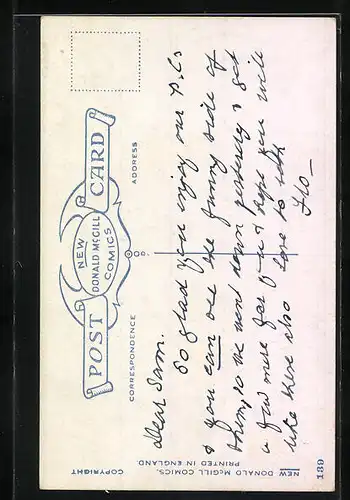 POST CARD
NEW
DONALD McGILL
COMICS
CORRESPONDENCE
OR.
ADDRESS
Dear Sam.
So glad you enjoy our P.Cs
& you can see the funny side of
them, so we went down yesterday & got
a few more for you & hope you will
like these also
love to both
Flo
COPYRIGHT
NEW DONALD McGILL COMICS.
PRINTED IN ENGLAND.
139